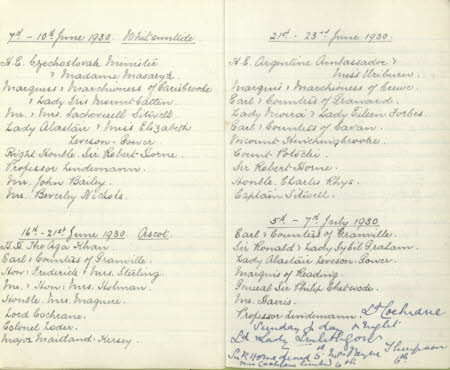 7th - 10th June 1930. Whitsuntide
H.E. Czechoslovak Minister
& Madame Masaryk.
Marquess & Marchioness of Carisbrooke
& Lady Iris Mountbatten
Mr. & Mrs. Sacheverell Sitwell
Lady Alastair & Miss Elizabeth
Leveson-Gower
Right Honble. Sir Robert Horne.
Professor Lindemann.
Mr. John Bailey.
Mr. Beverley Nichols.
16th - 21st June 1930 Ascot.
H.H. The Aga Khan.
Earl & Countess of Granville.
Hon: Frederick & Mrs. Sterling
Mr. & Hon: Mrs. Holman.
Honble. Mrs. Maguire.
Lord Cochrane.
Colonel Loder.
Major Maitland-Kersey.
21st - 23rd June 1930.
H.E. Argentine Ambassador &
Miss Uriburu.
Marquis & Marchioness of Crewe.
Earl & Countess of Granard.
Lady Moira & Lady Eileen Forbes.
Earl & Countess of Cavan.
Viscount Hinchingbrooke.
Count Potocki.
Sir Robert Horne.
Honble. Charles Rhys.
Captain Sitwell.
5th - 7th July 1930.
Earl & Countess of Granville.
Sir Ronald & Lady Sybil Graham.
Lady Alastair Leveson-Gower.
Marquis of Reading.
General Sir Philip Chetwode.
Mr. Harris.
Professor Lindemann. Ld Cochrane
Sunday & day & night
Ld Lady Linlithgow
Sir R Horne dined 5th Mrs Payne Thompson
6th